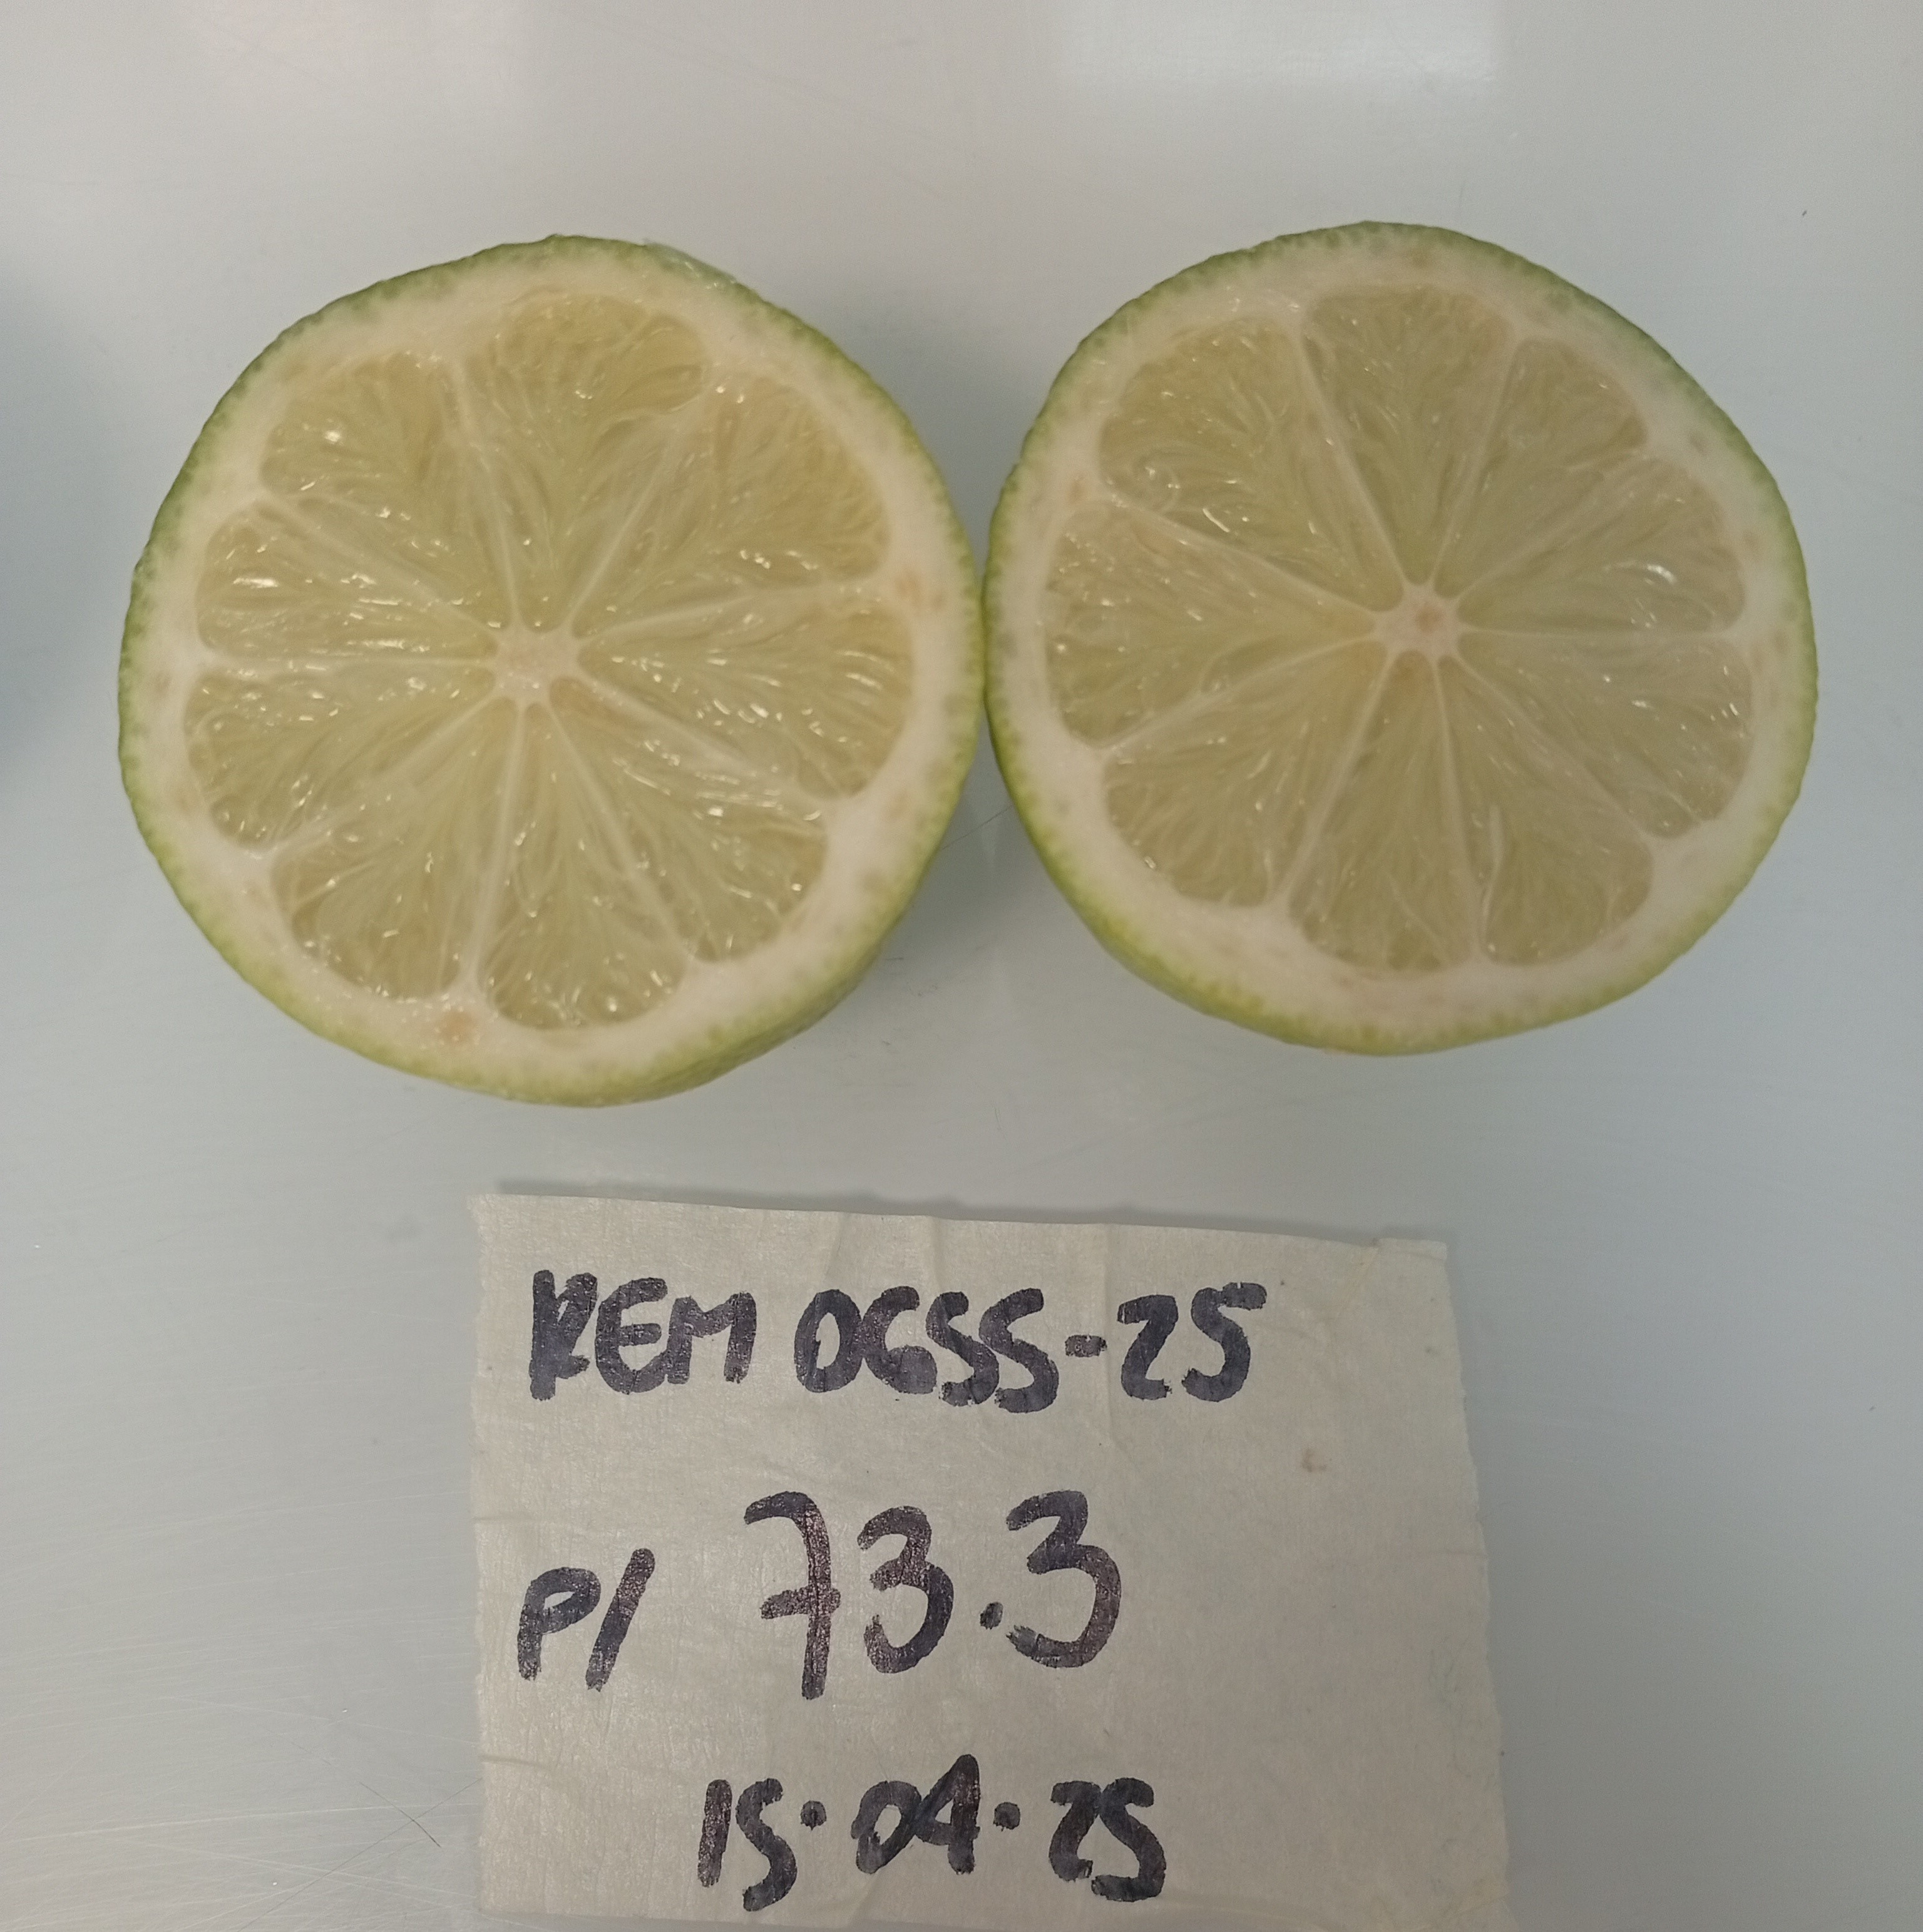 REM 0655-25
P/ 73.3
15.04.25